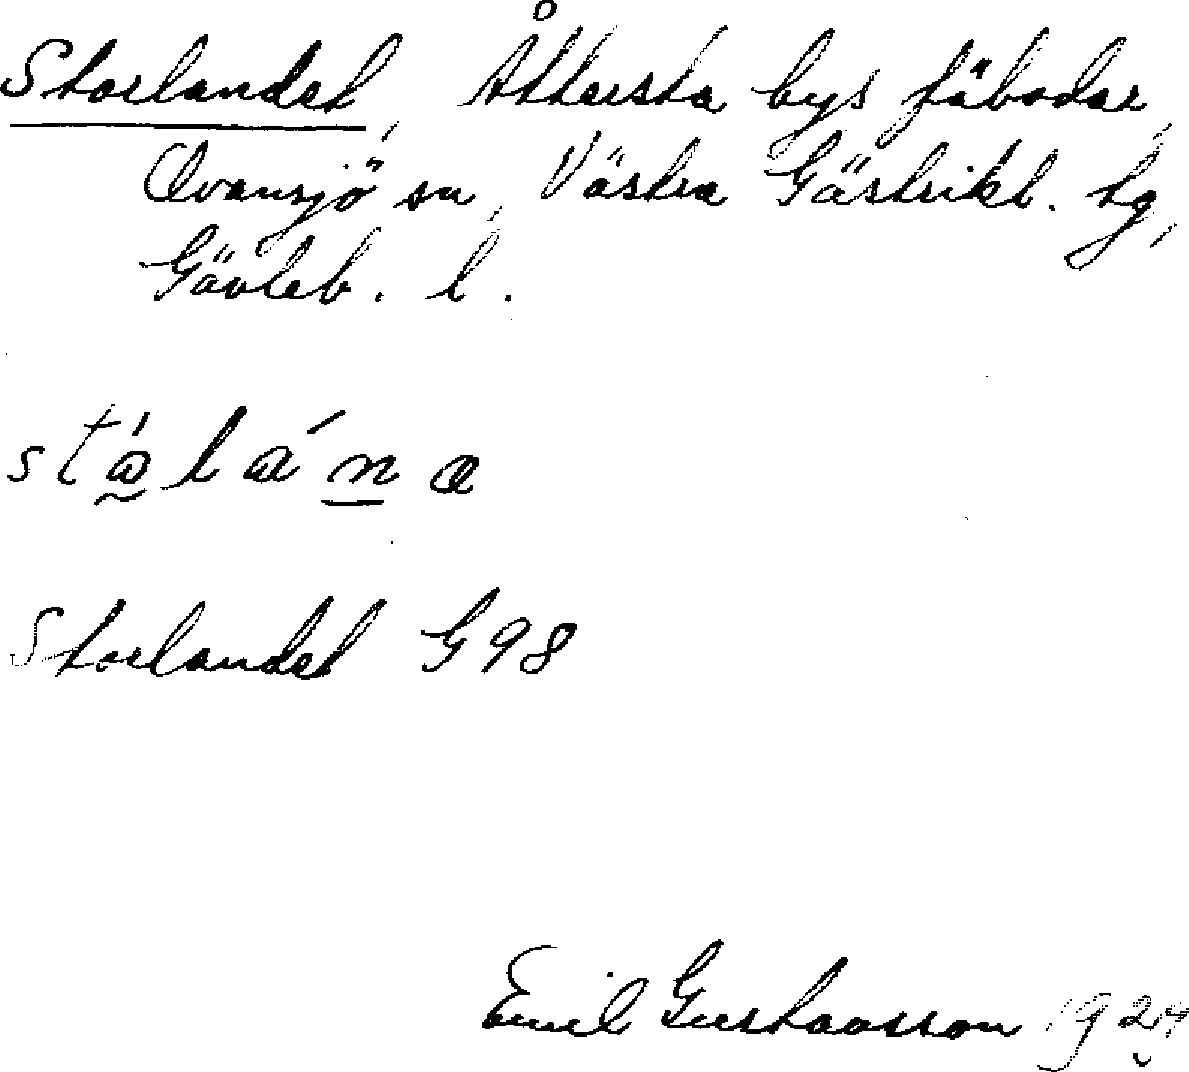 Storlandet, Åttersta bys fäbodar,
Ovansjö sn, Västra Gästrikl. tg,
Gävleb. l.
Storlandet G98
Emil Gustavsson